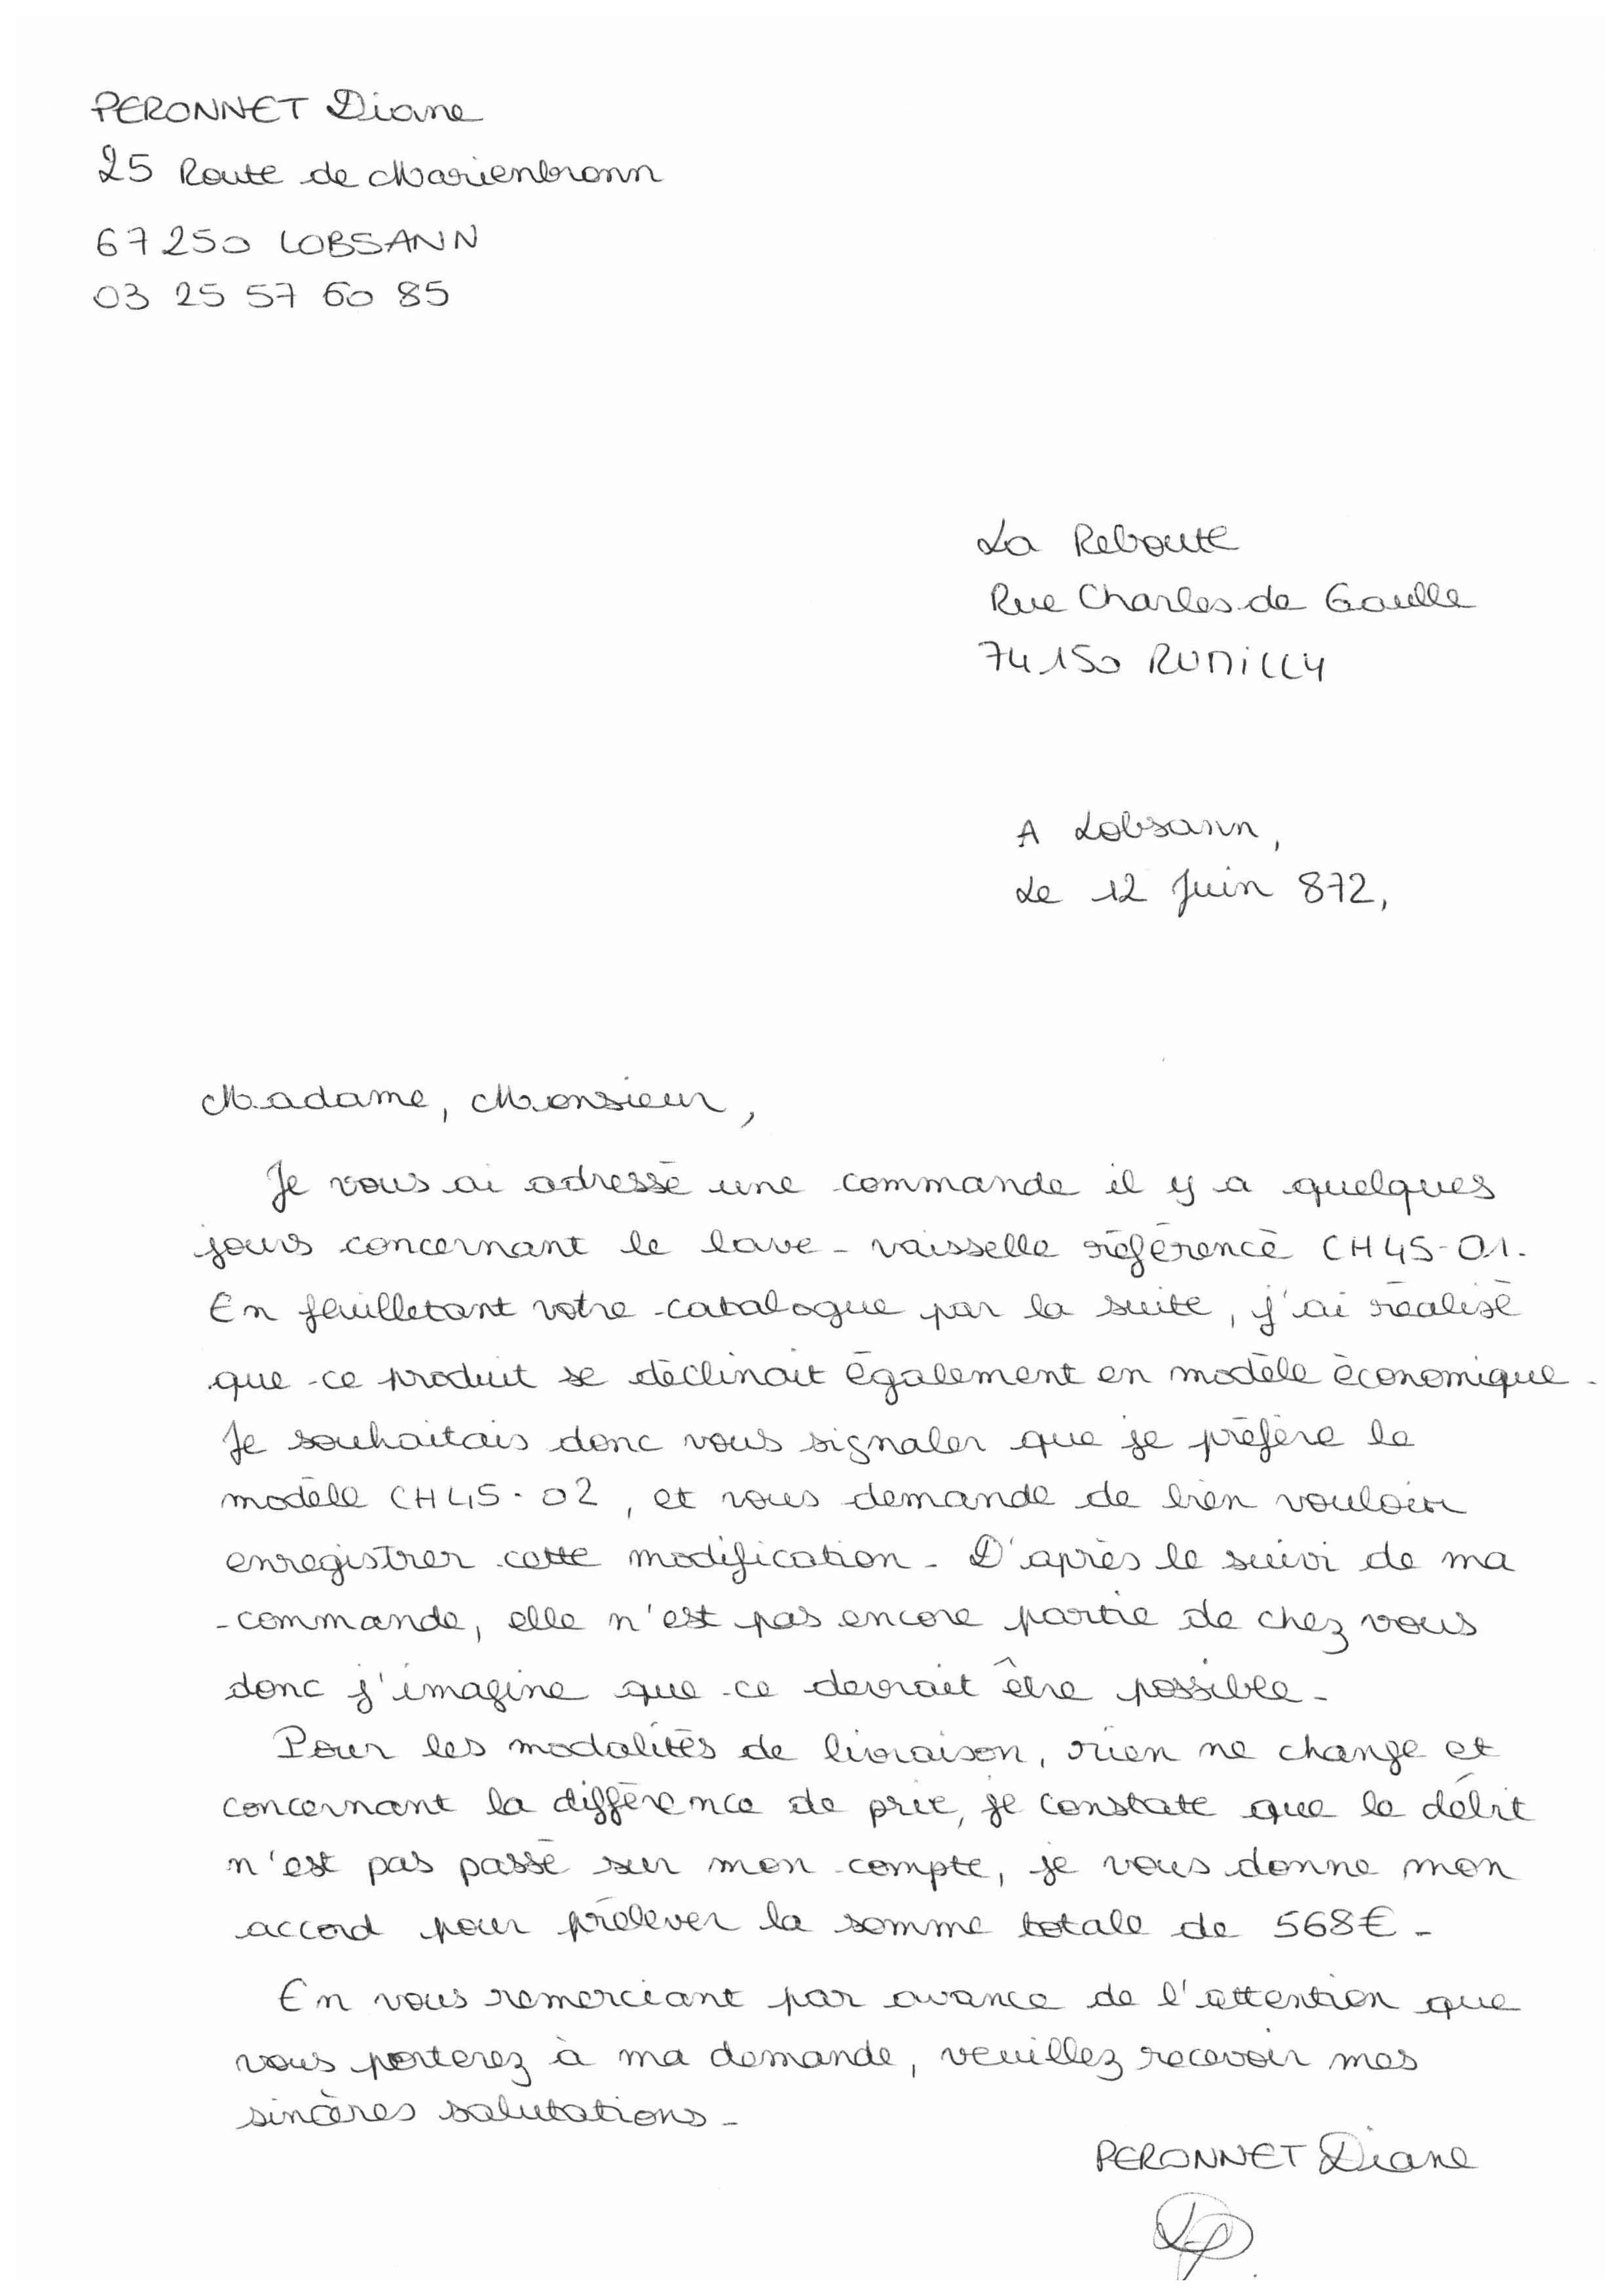 PERONNET Diane
25 Route de Marienbronn
67250 LOBSANN
03 25 57 60 85
La Reboute
Rue Charles de Gaulle
74150 RUMILLY
A Lobsann,
Le 12 Juin 872,
Madame, Monsieur,
Je vous ai adressé une commande il y a quelques
jours concernant le lave-vaisselle référencé CH45-01.
En feuilletant votre catalogue par la suite, j'ai réalisé
que ce produit se déclinait également en modèle économique.
Je souhaitais donc vous signaler que je préfère le
modèle CH45-02, et vous demande de bien vouloir
enregistrer cette modification. D'après le suivi de ma
commande, elle n'est pas encore partie de chez vous
donc j'imagine que ce devrait être possible.
Pour les modalités de livraison, rien ne change et
concernant la différence de prix, je constate que le débit
n'est pas passé sur mon compte, je vous donne mon
accord pour prélever la somme totale de 568€.
En vous remerciant par avance de l'attention que
vous porterez à ma demande, veuillez recevoir mes
sincères salutations.
PERONNET Diane